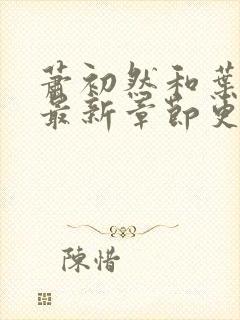 萧初然和葉
最新章節更
陳惜